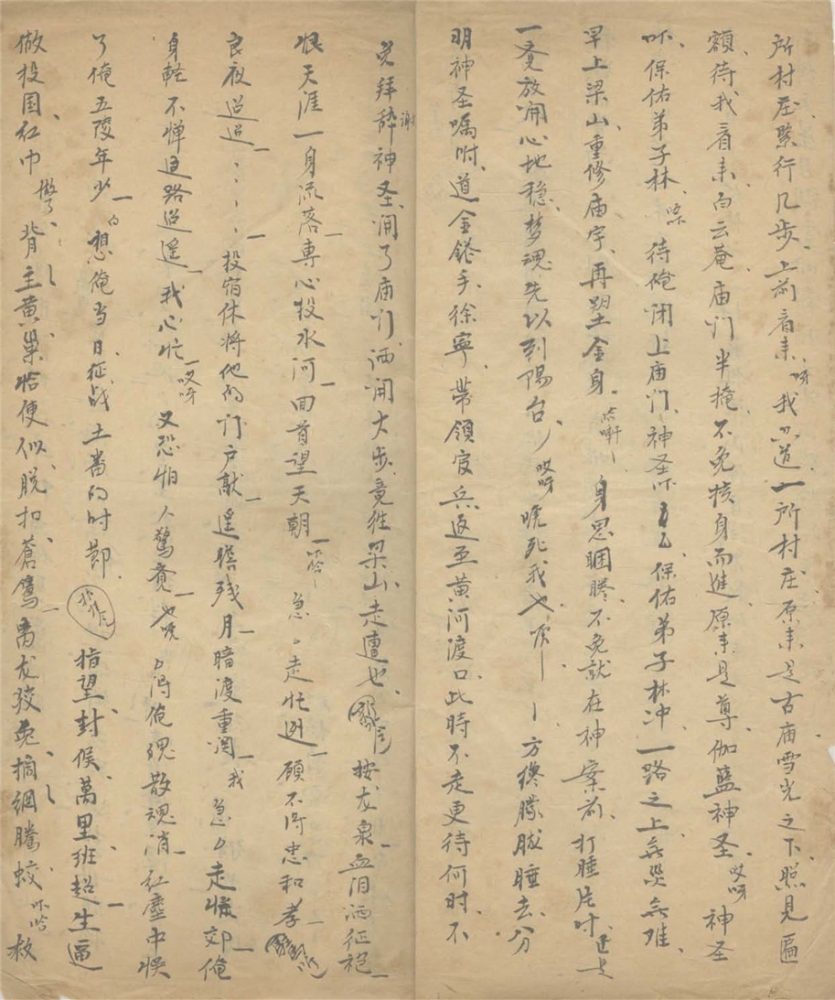 所村庄緊行几步上前看来呀我只道一所村庄原来是古庙雪光之下照見匾
額待我看来白云菴庙门半掩不免挨身而進原来是尊伽藍神圣哎呀神圣
吓保佑弟子林吓待俺闭上庙门神圣吓保佑弟子林冲一路之上無災無难
早上梁山重修庙宇再塑金身身思睏騰不免就在神案前打睡片时正是
一更放開心地穩梦魂先以到陽台哎呀唬死我也方纔朦胧睡去分
明神圣嘱咐道金鎗手徐寧带領官兵返至黄河渡口此時不走更待何时不
免拜辞谢神圣開了庙门洒開大步竟往梁山走遭也按龙泉血泪洒征袍
恨天涯一身流落專心投水河回首望天朝急走忙逃顾不得忠和孝
良夜迢迢投宿休將他的门户敲遥瞻残月暗渡重関我急走慌郊俺
身輕不惮迢路迢遥我心忙哎呀又恐怕人驚竟也得俺魂散魂消红塵中悮
了俺五陵年少白想俺当日征战土番的时節指望封侯萬里班超生逼
做投国红巾做了背主黄巢恰便似脱扣蒼鹰离龙狡兎摘網騰蛟吓哈救